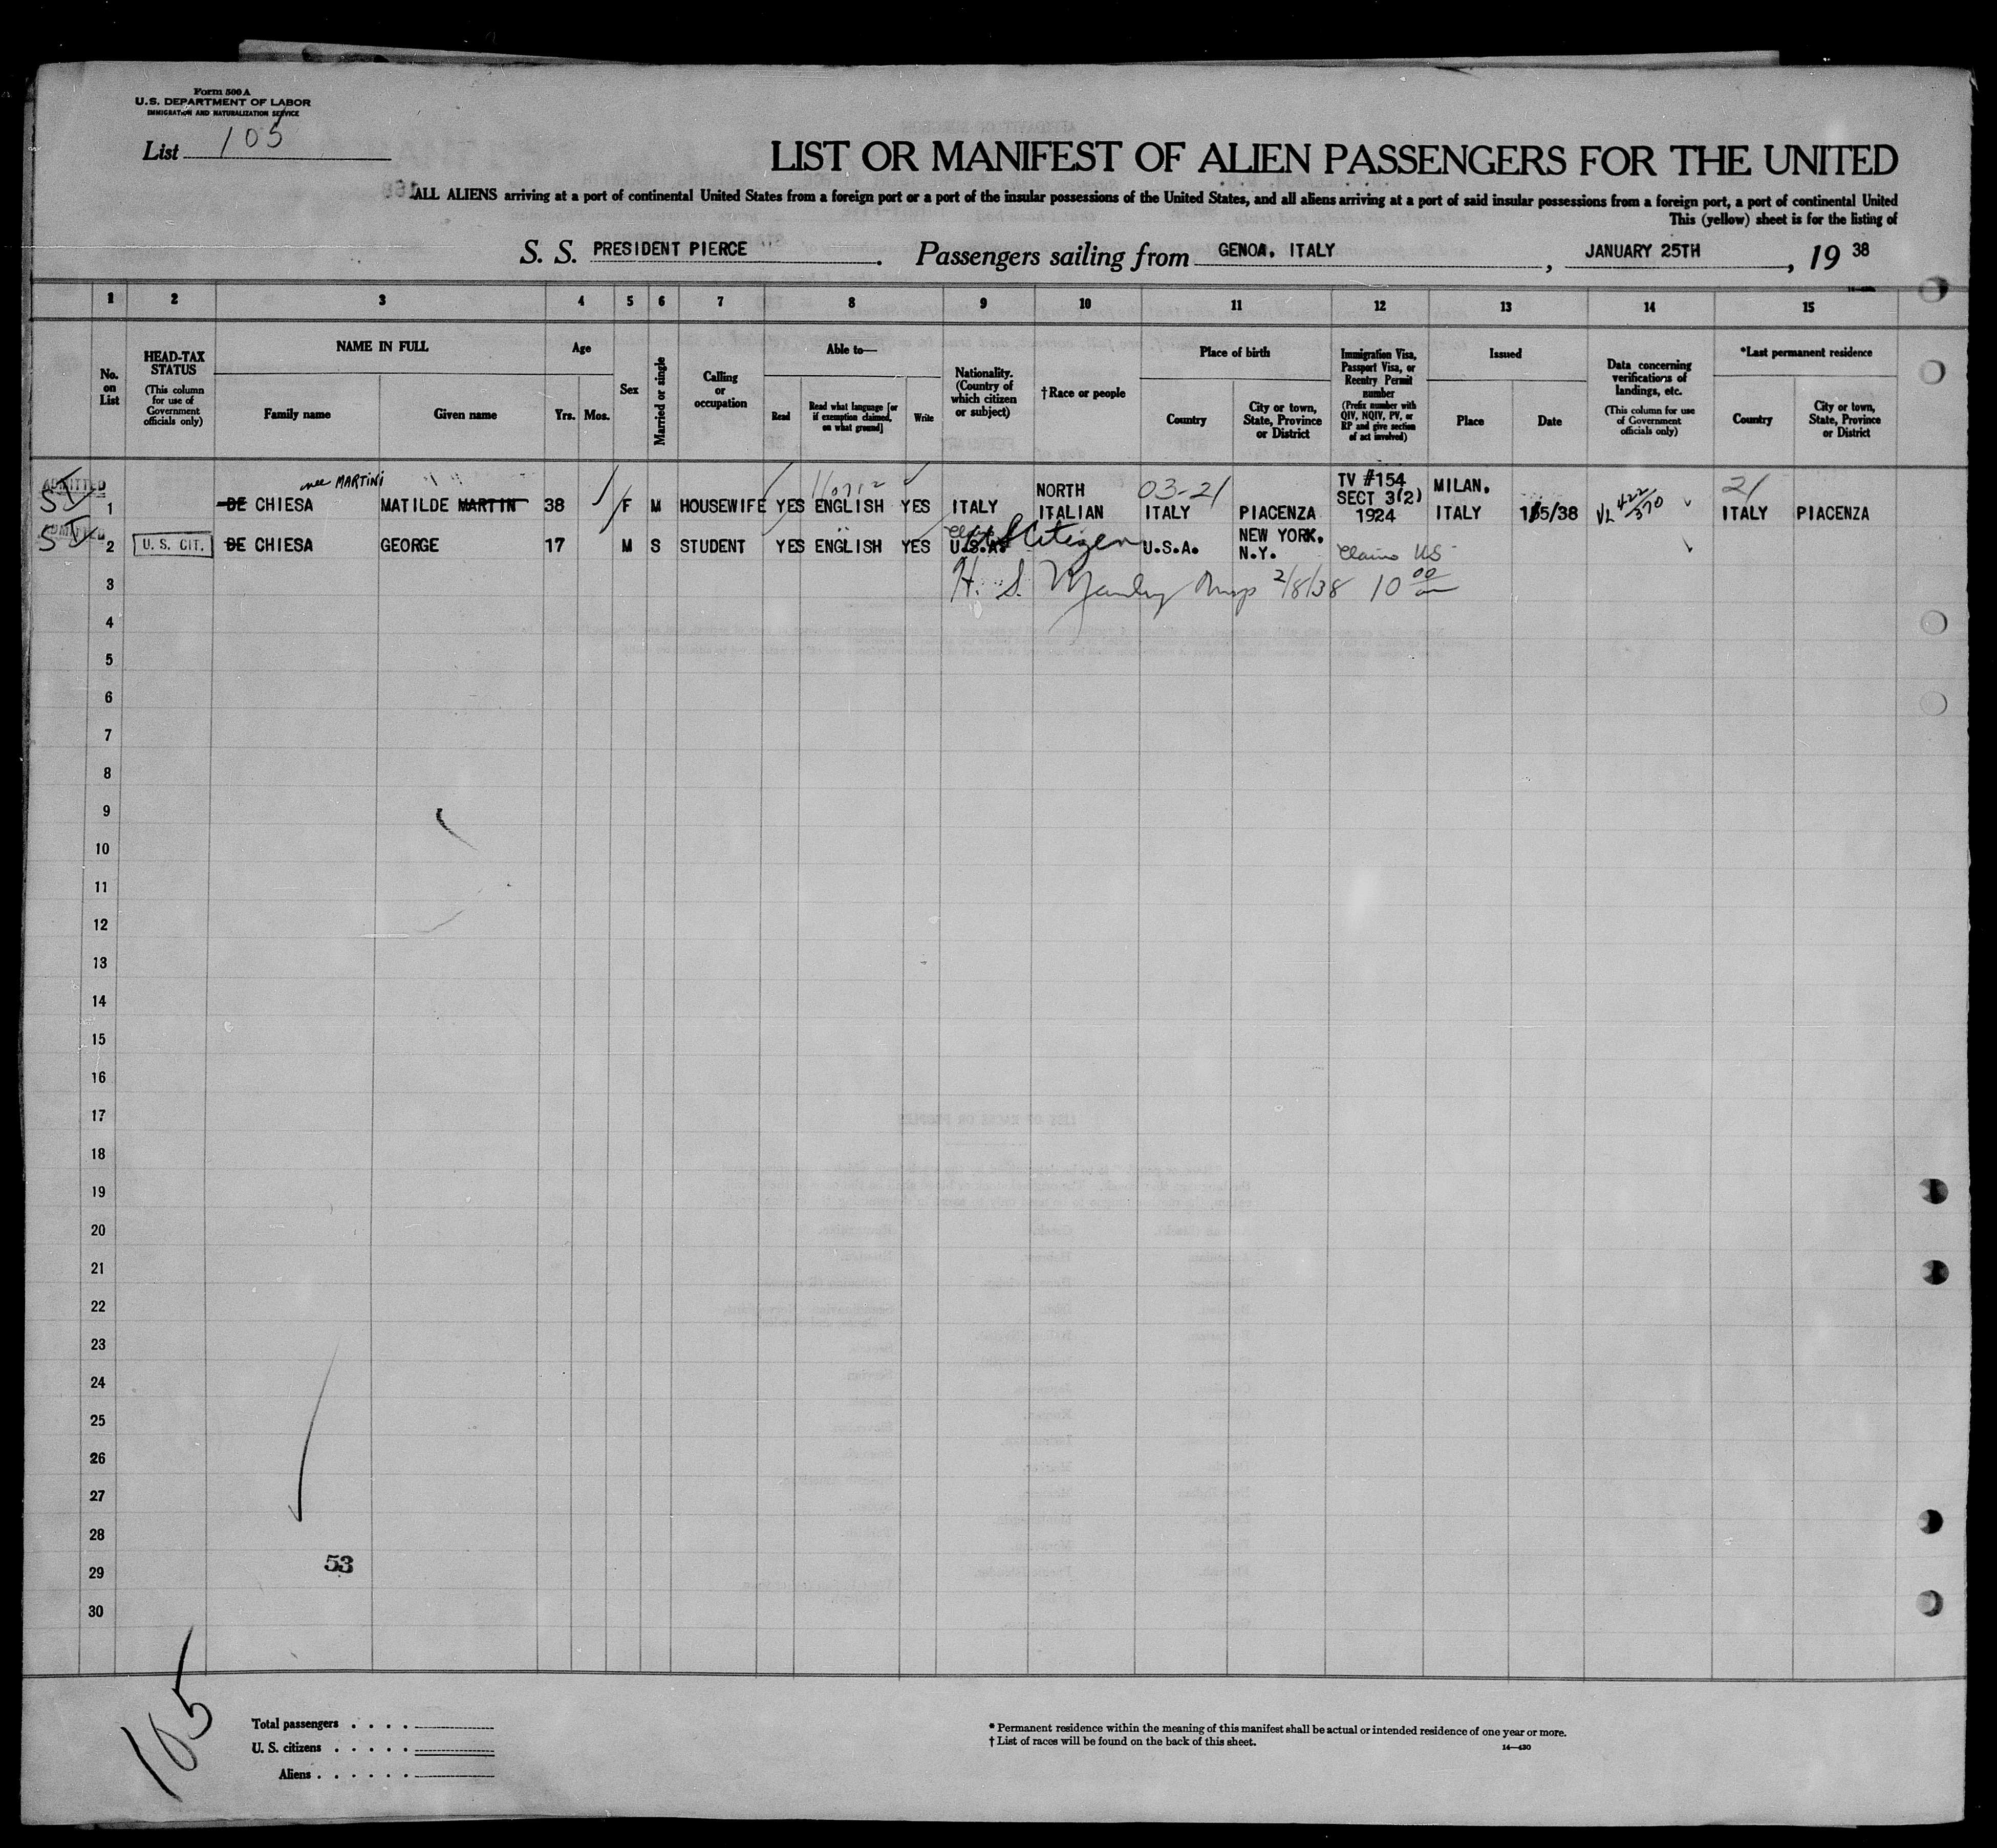 Form 500 A
U.S. DEPARTMENT OF LABOR
IMMIGRATION AND NATURALIZATION SERVICE
List 105
LIST OR MANIFEST OF ALIEN PASSENGERS FOR THE UNITED
ALL ALIENS arriving at a port of continental United States from a foreign port or a port of the insular possessions of the United States, and all aliens arriving at a port of said insular possessions from a foreign port, a port of continental United
This (yellow) sheet is for the listing of
S. S. PRESIDENT PIERCE. Passengers sailing from GENOA, ITALY, JANUARY 25TH, 19 38
1 2 3 4 5 6 7 8 9 10 11 12 13 14 15
No. on List
HEAD-TAX STATUS (This column for use of Government officials only)
NAME IN FULL
Family name
Given name
Age
Yrs. Mos.
Sex
Married or single
Calling or occupation
Able to—
Read
Read what language [or if exemption claimed, on what ground]
Write
Nationality. (Country of which citizen or subject)
†Race or people
Place of birth
Country
City or town, State, Province or District
Immigration Visa, Passport Visa, or Reentry Permit number (Prefix number with QIV, NQIV, PV, or RP and give section of act involved)
Issued
Place
Date
Data concerning verifications of landings, etc. (This column for use of Government officials only)
*Last permanent residence
Country
City or town, State, Province or District
ADMITTED
nee MARTINI
1 DE CHIESA MATILDE MARTIN 38 F M HOUSEWIFE YES ENGLISH YES ITALY NORTH ITALIAN 03-21 ITALY PIACENZA TV #154 SECT 3(2) 1924 MILAN, ITALY 1/5/38 VL 422/370 21 ITALY PIACENZA
ADMITTED
2 U. S. CIT. DE CHIESA GEORGE 17 M S STUDENT YES ENGLISH YES U.S.A. US Citizen U.S.A. NEW YORK, N.Y. Claims US
3 H. S. 2/8/38 10 00
4
5
6
7
8
9
10
11
12
13
14
15
16
17
18
19
20
21
22
23
24
25
26
27
28
53
29
30
105
Total passengers . . . .
U. S. citizens . . . . .
Aliens . . . . . .
* Permanent residence within the meaning of this manifest shall be actual or intended residence of one year or more.
† List of races will be found on the back of this sheet.
14—430